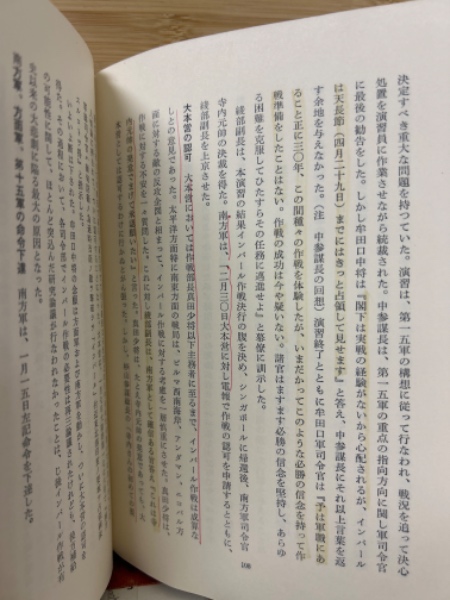 決定すべき重大な問題を持つていた。演習は、第一五軍の構想に従って行なわれ、戦況を追って決心
処置を演習員に作業させながら統裁された。中参謀長は、第一五軍の重点の指向方向に関し軍司令官
に最後の勧告をした。しかし牟田口中将は『閣下は実戦の経験がないから心配されるが、インパール
は天長節(四月二十九日)までにはきっと占領して見せます』と答え、中参謀長にそれ以上言葉を返
す余地を与えなかった。(注 中参謀長の回想)演習終了とともに牟田口軍司令官は『予は軍職にあ
ること正に三〇年、この間種々の作戦を体験したが、いまだかってこのような必勝の信念を持って作
戦準備をしたことはない。作戦の成功は今や疑いない。諸官はますます必勝の信念を堅持し、あらゆ
る困難を克服してひたすらその任務に邁進せよ』と幕僚に訓示した。
綾部副長は、本演習の結果インパール作戦決行の腹を決め、シンガポールに帰還後、南方軍司令官
寺内元帥の決裁を得た。南方軍は、一二月三〇日大本営に対し電報で作戦の認可を申請するとともに、
綾部副長を上京させた。
大本営の認可 大本営においては作戦部長真田少将以下主務者に至るまで、インパール作戦は成算な
しとの意見であった。太平洋方面特に南東方面の戦局は、ビルマ西南海岸、アンダマン、ニコバル方
面に対する敵の反攻企図と相まって、インパール作戦に対する考慮を一層慎重にさせた。真田少将は、
作戦に対する不安を一々質問した。これに対し綾部副長は、南方軍として確信ある答えで
109
史以来の大悲劇に陥る最大の原因となった。
南方軍、方面軍、第十五軍の命令下達 南方軍は、一月一五日左記命令を下達した。